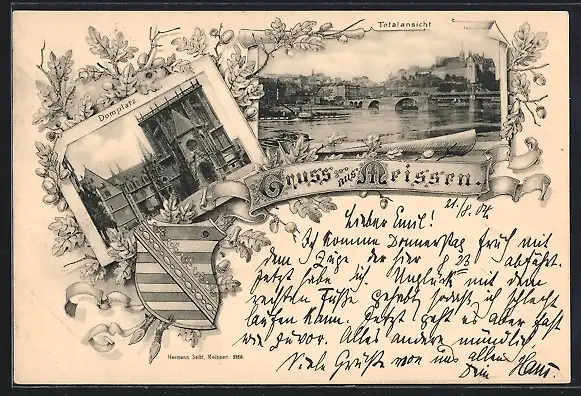 Totalansicht
Domplatz.
Gruss aus Meissen.
21./8. 04.
Lieber Emil!
Ich komme Donnerstag früh mit
dem Züge der hier 8 23 abfährt.
Jetzt habe ich Unglück mit dem
rechten Fuße gehabt sodaß ich schlecht
laufen kann. Jetzt geht es aber fast
wie zuvor. Alles andere mündlich
Viele Grüße von uns allen
Dein Hans.
Hermann Seibt, Meissen.